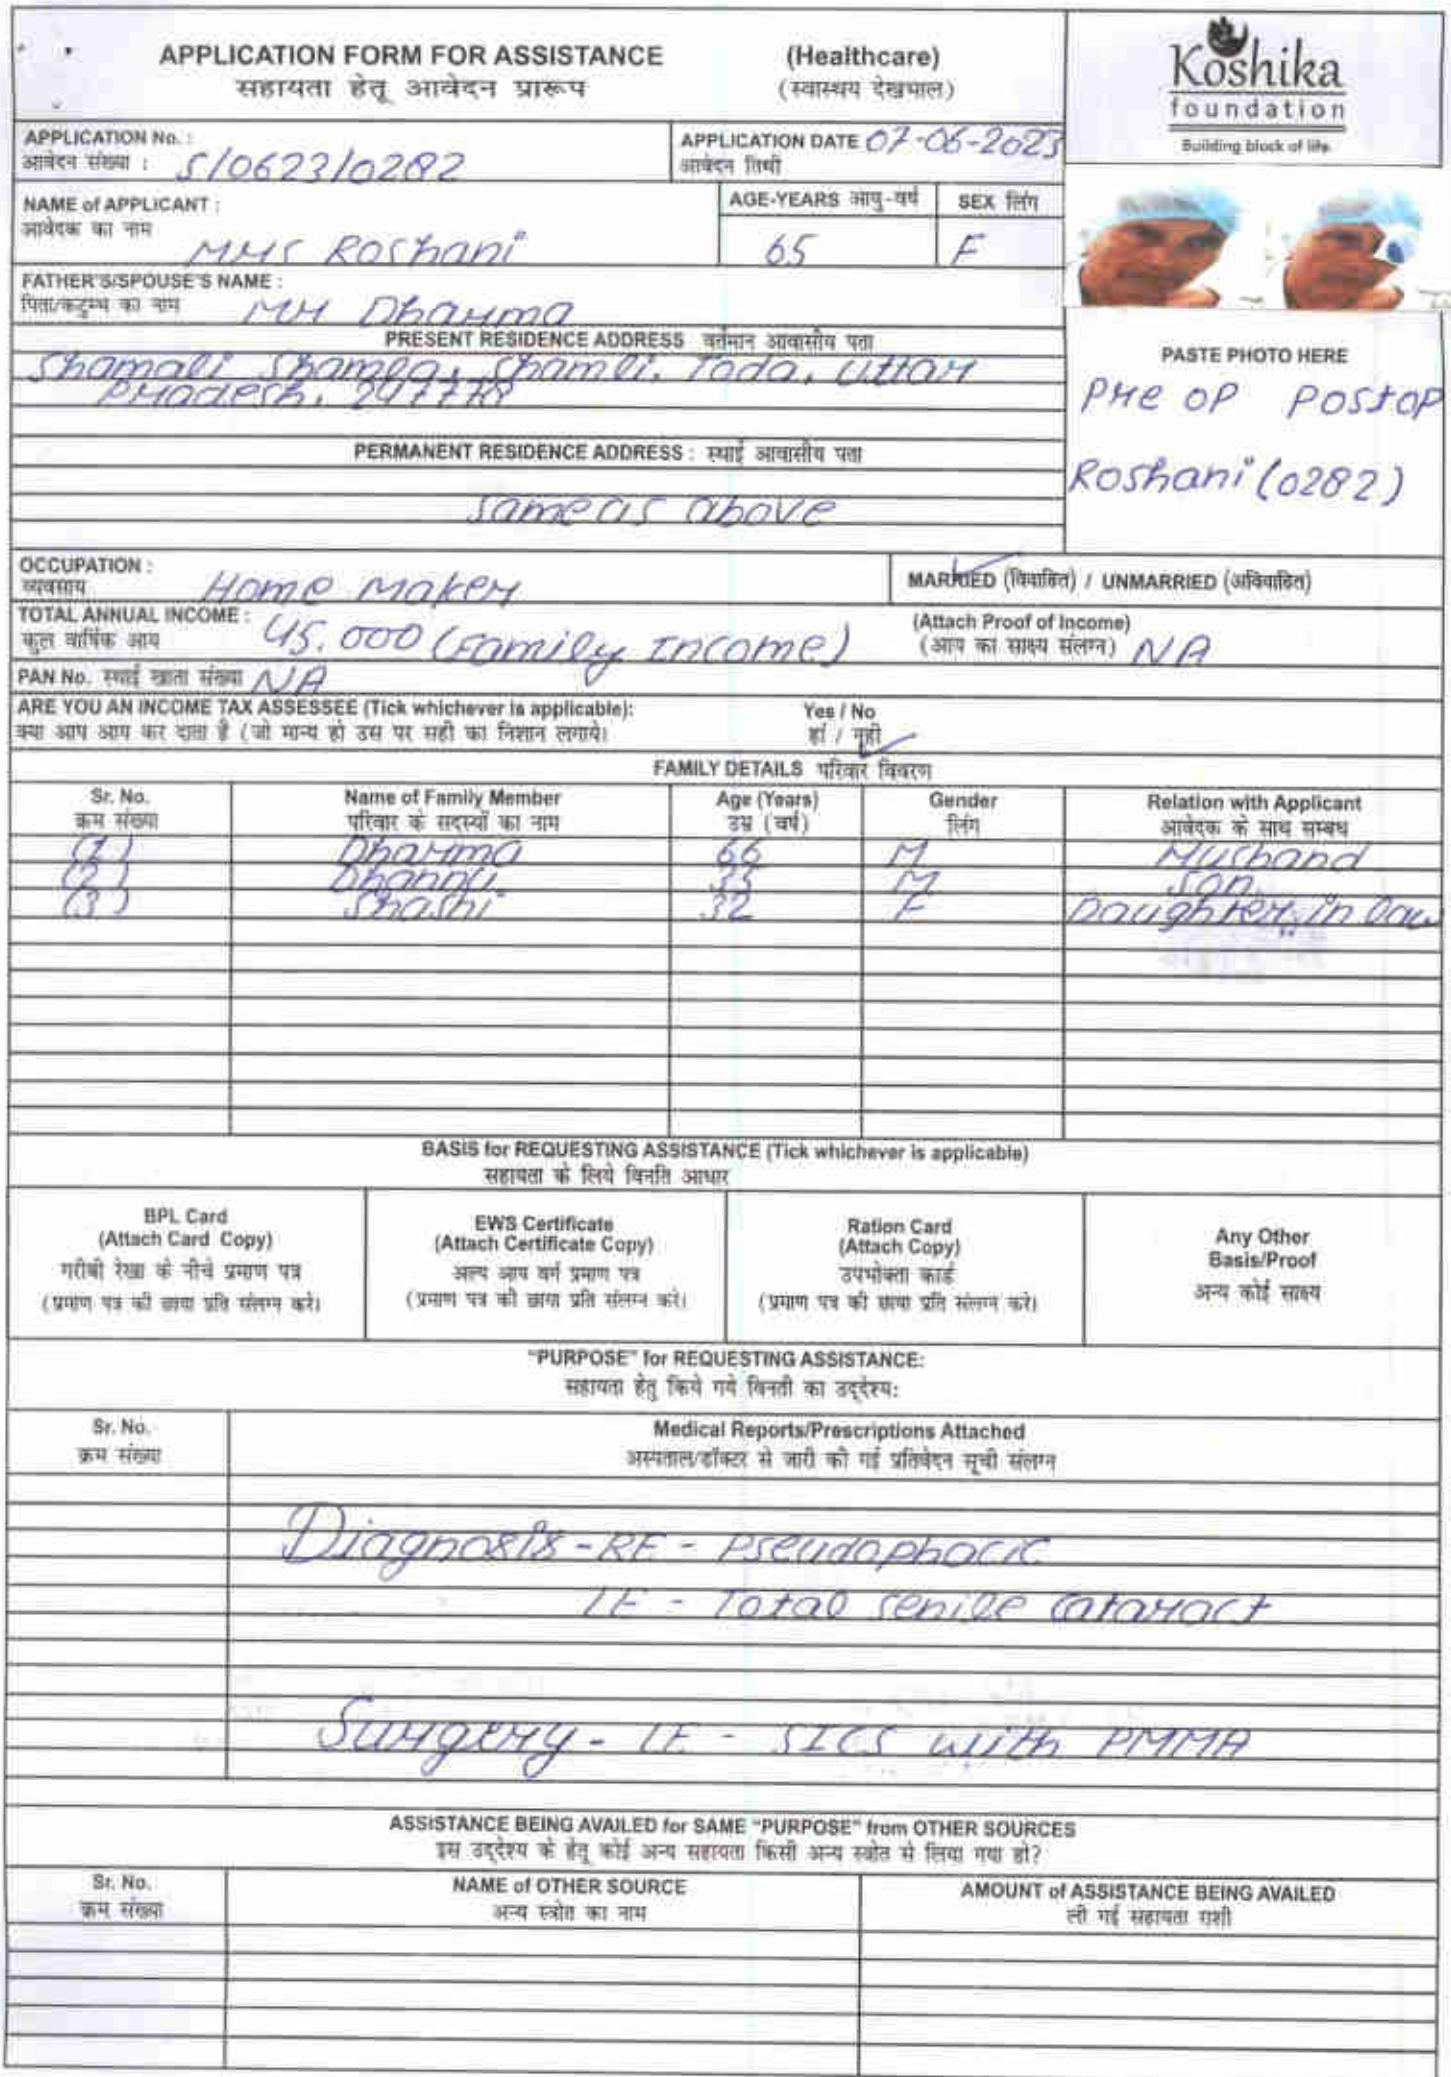 APPLICATION FORM FOR ASSISTANCE (Healthcare)
सहायता हेतू आवेदन प्रारूप (स्वास्थय देखभाल)
Koshika
foundation
Building block of life.
APPLICATION No. : S/0623/0282
आवेदन संख्या :
APPLICATION DATE 07-06-2023
आवेदन तिथी
NAME of APPLICANT :
आवेदक का नाम
Mrs Roshani
AGE-YEARS आयु-वर्ष
65
SEX लिंग
F
FATHER'S/SPOUSE'S NAME :
पिता/कटुम्ब का नाम
Mr Dharma
PRESENT RESIDENCE ADDRESS वर्तमान आवासीय पता
Shamali Shamla, Shamli, Toda, Uttar
Pradesh,
PASTE PHOTO HERE
Pre OP Postop
Roshani (0282)
PERMANENT RESIDENCE ADDRESS : स्थाई आवासीय पता
Same as above
OCCUPATION :
व्यवसाय
Home Maker
MARRIED (विवाहित) / UNMARRIED (अविवाहित)
TOTAL ANNUAL INCOME :
कुल वार्षिक आय
45,000 (Family Income)
(Attach Proof of Income)
(आय का साक्ष्य संलग्न) NA
PAN No. स्थाई खाता संख्या NA
ARE YOU AN INCOME TAX ASSESSEE (Tick whichever is applicable): Yes / No
क्या आप आय कर दाता है (जो मान्य हो उस पर सही का निशान लगाये। हां / नही
FAMILY DETAILS परिवार विवरण
Sr. No. Name of Family Member Age (Years) Gender Relation with Applicant
क्रम संख्या परिवार के सदस्यों का नाम उम्र (वर्ष) लिंग आवेदक के साथ सम्बध
(1) Dharma 66 M Husband
(2) M Son
(3) Shashi 32 F Daughter in law
BASIS for REQUESTING ASSISTANCE (Tick whichever is applicable)
सहायता के लिये विनति आधार
BPL Card
(Attach Card Copy)
गरीबी रेखा के नीचे प्रमाण पत्र
(प्रमाण पत्र की छाया प्रति संलग्न करे।
EWS Certificate
(Attach Certificate Copy)
अल्प आय वर्ग प्रमाण पत्र
(प्रमाण पत्र की छाया प्रति संलग्न करे।
Ration Card
(Attach Copy)
उपभोक्ता कार्ड
(प्रमाण पत्र की छाया प्रति संलग्न करे।
Any Other
Basis/Proof
अन्य कोई साक्ष्य
"PURPOSE" for REQUESTING ASSISTANCE:
सहायता हेतु किये गये विनती का उद्देश्य:
Sr. No. Medical Reports/Prescriptions Attached
क्रम संख्या अस्पताल/डॉक्टर से जारी की गई प्रतिवेदन सूची संलग्न
Diagnosis - RE - Pseudophacic
LE - Total senile Cataract
Surgery - LE - SICS with PMMA
ASSISTANCE BEING AVAILED for SAME "PURPOSE" from OTHER SOURCES
इस उद्देश्य के हेतू कोई अन्य सहायता किसी अन्य स्त्रोत से लिया गया हो?
Sr. No. NAME of OTHER SOURCE AMOUNT of ASSISTANCE BEING AVAILED
क्रम संख्या अन्य स्त्रोत का नाम ली गई सहायता राशी